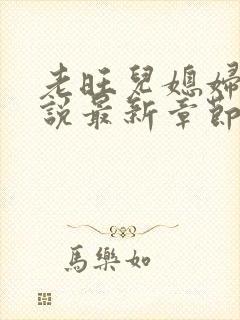 老旺兒媳婦
說最新章節
馬樂如